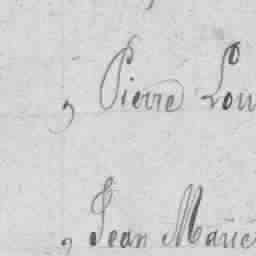 , Pierre Lou
, Jean Marie